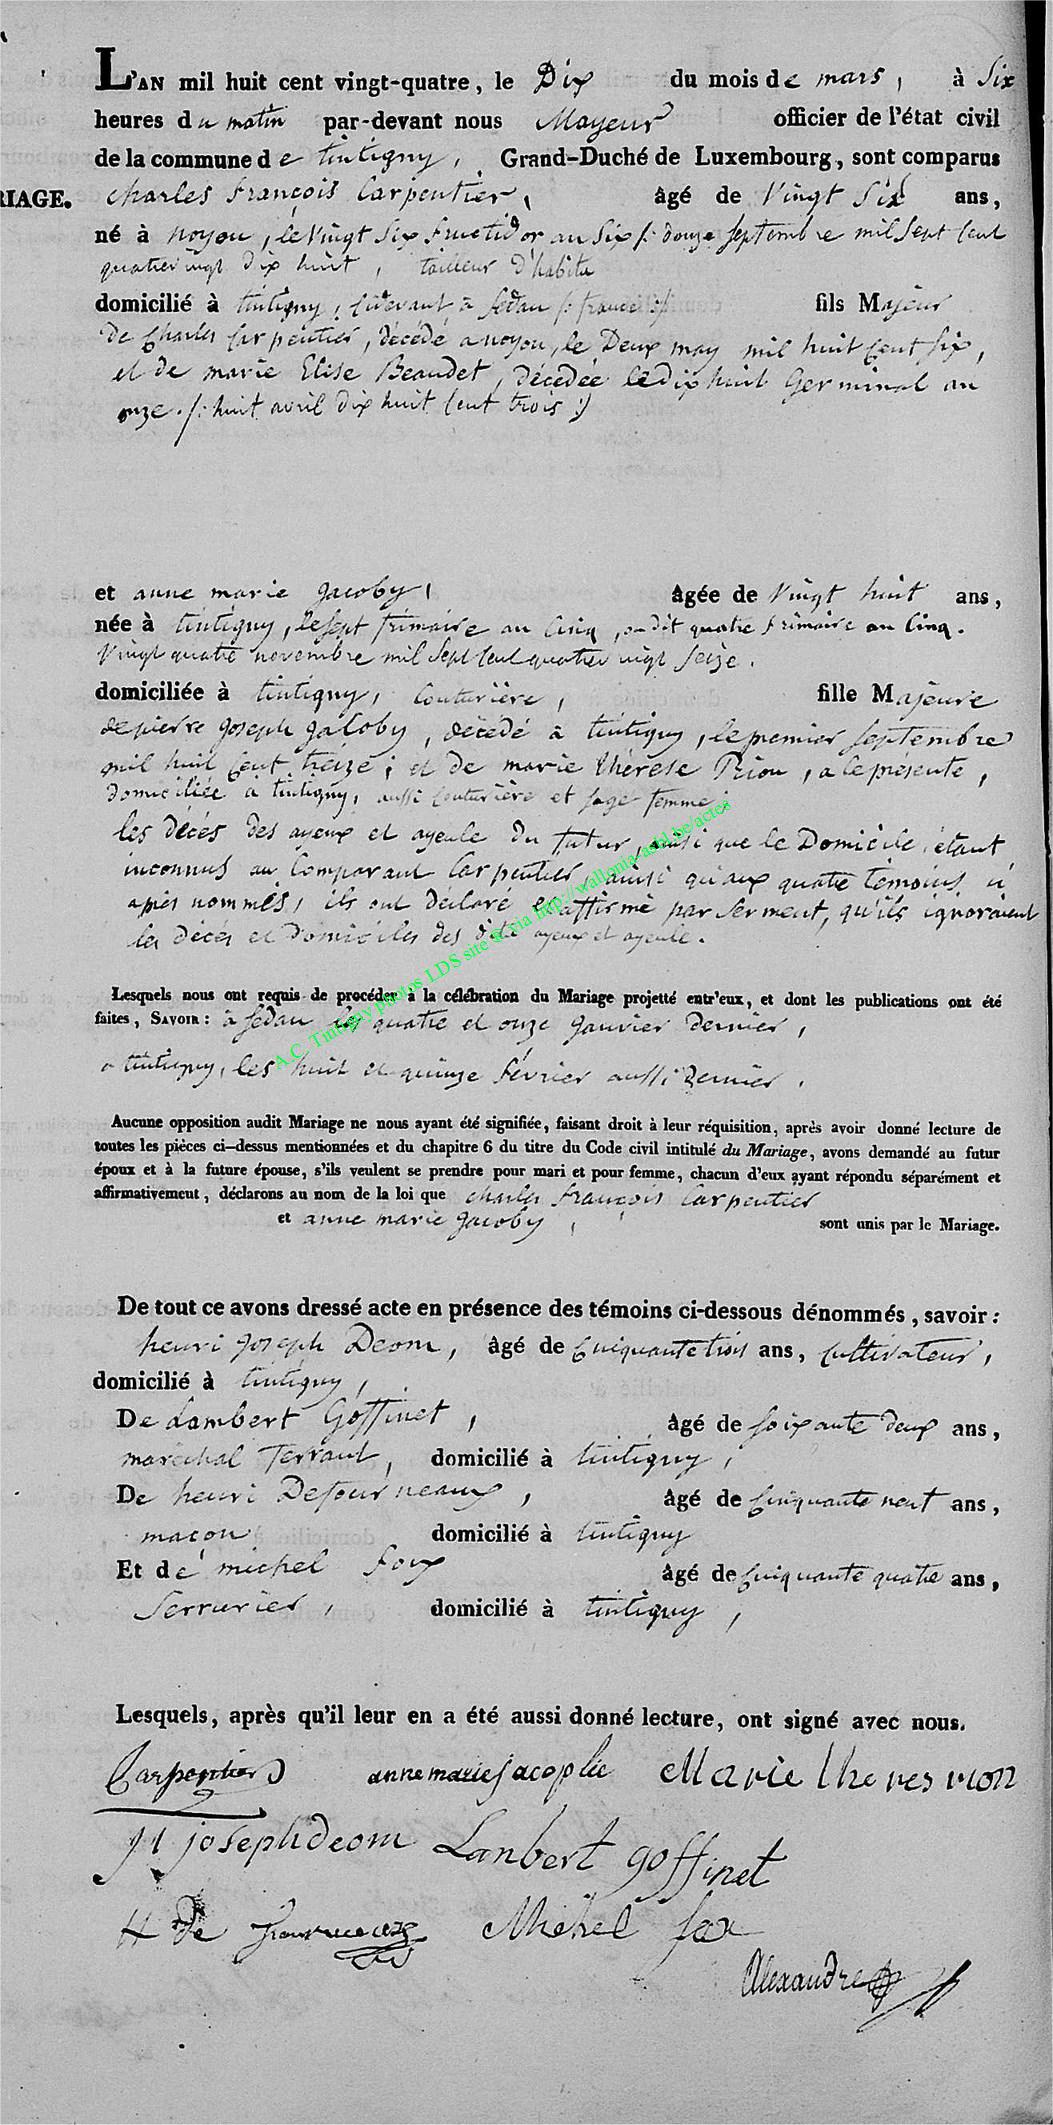 L'AN mil huit cent vingt-quatre, le Dix du mois de mars, à Six
heures du matin par-devant nous Mayeur officier de l'état civil
de la commune de tintigny, Grand-Duché de Luxembourg, sont comparus
RIAGE. Charles François Carpentier, âgé de Vingt Six ans,
né à noyon, le Vingt Six fructidor an Six /: douze septembre mil Sept Cent
quatrevingt dix huit, tailleur d'habits
domicilié à tintigny, cidevant à Sedan /: france :/ fils Majeur
De Charles Carpentier, décédé a noyon, le Deux may mil huit Cent six,
et de marie Elise Beaudet, décédée le dix huit Germinal an
onze. /: huit avril dix huit Cent trois :/
et anne marie Jacoby, âgée de Vingt huit ans,
née à tintigny, le sept frimaire an Cinq, ou dit quatre frimaire an Cinq.
Vingt quatre novembre mil Sept Cent quatrevingt Seize.
domiciliée à tintigny, Couturière, fille Majeure
de pierre Joseph Jacoby, décédé à tintigny, le premier Septembre
mil huit Cent treize; et de marie thérèse Prion, a ce présente,
domiciliée à tintigny, aussi Couturière et sage femme;
les décès des ayeux et ayeule du futur, ainsi que le Domicile, étant
inconnus au Comparant Carpentier, ainsi qu'aux quatre témoins ci
après nommés, ils ont déclaré et affirmé par serment, qu'ils ignoraient
les décès et Domiciles des dits ayeux et ayeule.
A.C. Tintigny photos LDS site et via http://wallonia-asbl.be/actes
Lesquels nous ont requis de procéder à la célébration du Mariage projetté entr'eux, et dont les publications ont été
faites, SAVOIR: à Sedan les quatre et onze Janvier dernier,
a tintigny, les huit et quinze février aussi Dernier.
Aucune opposition audit Mariage ne nous ayant été signifiée, faisant droit à leur réquisition, après avoir donné lecture de
toutes les pièces ci-dessus mentionnées et du chapitre 6 du titre du Code civil intitulé du Mariage, avons demandé au futur
époux et à la future épouse, s'ils veulent se prendre pour mari et pour femme, chacun d'eux ayant répondu séparément et
affirmativement, déclarons au nom de la loi que Charles François Carpentier
et anne marie Jacoby, sont unis par le Mariage.
De tout ce avons dressé acte en présence des témoins ci-dessous dénommés, savoir:
henri Joseph Deom, âgé de Cinquante trois ans, Cultivateur,
domicilié à tintigny,
De Lambert Goffinet, âgé de soixante deux ans,
maréchal ferrant, domicilié à tintigny,
De henri Defourneaux, âgé de Cinquante neuf ans,
maçon domicilié à tintigny
Et de michel Foux âgé de Cinquante quatre ans,
Serrurier, domicilié à tintigny,
Lesquels, après qu'il leur en a été aussi donné lecture, ont signé avec nous.
Carpentier anne marie Jacoplie Marie theres rion
H joseph deom Lanbert goffinet
H De Michel fox
Alexandre